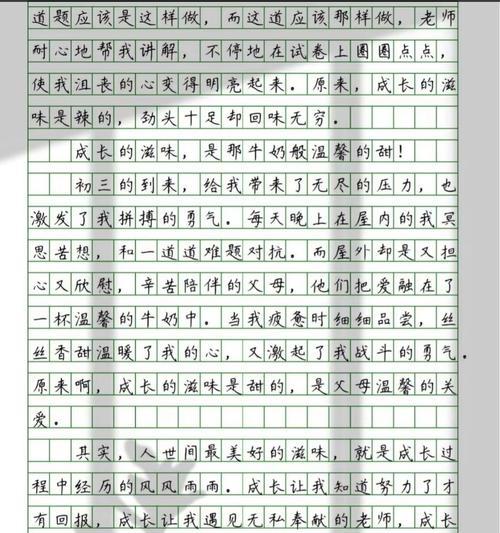 道题应该是这样做，而这道应该那样做，老师
耐心地帮我讲解，不停地在试卷上圈圈点点，
使我沮丧的心变得明亮起来。原来，成长的滋
味是辣的，劲头十足却回味无穷。
成长的滋味，是那牛奶般温馨的甜！
初三的到来，给我带来了无尽的压力，也
激发了我拼搏的勇气。每天晚上在屋内的我冥
思苦想，和一道道难题对抗。而屋外却是又担
心又欣慰，辛苦陪伴的父母，他们把爱融在了
一杯温馨的牛奶中。当我疲惫时细细品尝，丝
丝香甜温暖了我的心，又激起了我战斗的勇气。
原来啊，成长的滋味是甜的，是父母温馨的关
爱。
其实，人世间最美好的滋味，就是成长过
程中经历的风风雨雨。成长让我知道努力了才
有回报，成长让我遇见无私奉献的老师，成长